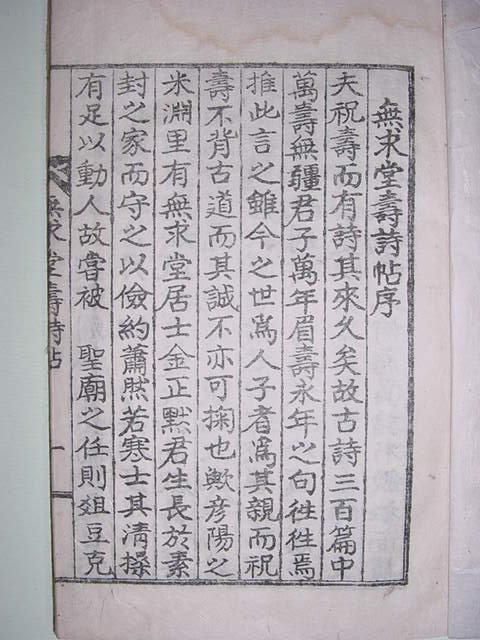 無求堂壽詩帖序
夫祝壽而有詩其來久矣故古詩三百篇中
萬壽無疆君子萬年眉壽永年之句徃徃焉
推此言之雖今之世爲人子者爲其親而祝
壽不背古道而其誠不亦可掬也歟彦陽之
米淵里有無求堂居士金正默君生長於素
封之家而守之以儉約蕭然若寒士其清操
有足以動人故嘗被 聖廟之任則俎豆克
無求堂壽詩帖 一